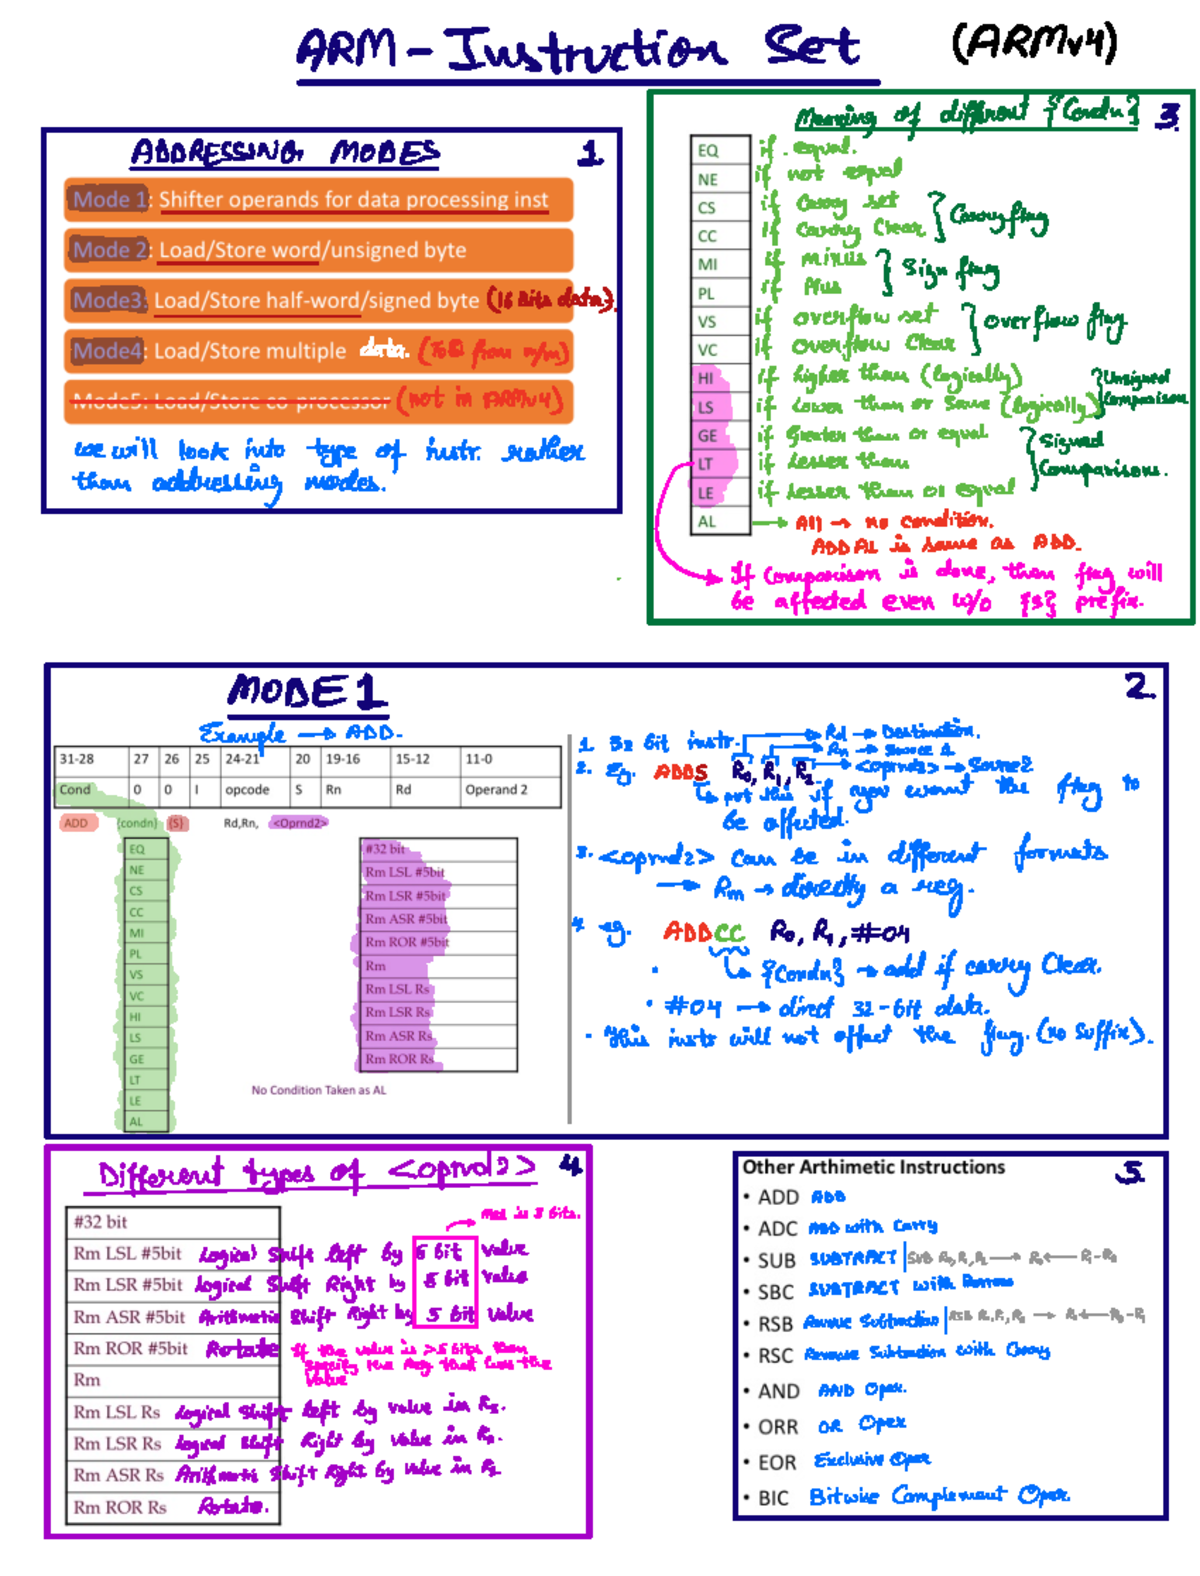 ARM - Instruction Set (ARMv4)
ADDRESSING MODES 1.
Mode 1: Shifter operands for data processing inst
Mode 2: Load/Store word/unsigned byte
Mode3: Load/Store half-word/signed byte (16 Bits data).
Mode4: Load/Store multiple data. (To & from m/m)
Mode5: Load/Store co-processor (not in ARMv4)
we will look into type of instr. rather
than addressing modes.
Meaning of different {Condn} 3.
EQ if equal.
NE if not equal
CS if Carry set
CC if Carry Clear } Carry flag
MI if minus
PL if Plus } Sign flag
VS if overflow set
VC if overflow Clear } overflow flag
HI if higher than (logically)
LS if Lower than or Same (logically) } Unsigned Comparison
GE if Greater than or equal
LT if Lesser than
LE if Lesser than or equal } Signed Comparisons.
AL → All → no condition.
ADDAL is same as ADD.
If Comparison is done, then flag will
be affected even w/o {S} prefix.
MODE 1 2.
Example → ADD.
31-28 27 26 25 24-21 20 19-16 15-12 11-0
Cond 0 0 I opcode S Rn Rd Operand 2
ADD {condn} {S} Rd,Rn, <Oprnd2>
EQ
NE
CS
CC
MI
PL
VS
VC
HI
LS
GE
LT
LE
AL
#32 bit
Rm LSL #5bit
Rm LSR #5bit
Rm ASR #5bit
Rm ROR #5bit
Rm
Rm LSL Rs
Rm LSR Rs
Rm ASR Rs
Rm ROR Rs
No Condition Taken as AL
1. 32 bit instr. Rd → Destination.
Rn → Source 1
2. Eg. ADDS R0, R1, R2 → <oprnd2> → Source2
put this if you want the flag to
be affected.
3. <oprnd2> can be in different formats
→ Rm → directly a reg.
4. eg. ADDCC R0, R1, #04
{Condn} → add if carry Clear.
• #04 → direct 32-bit data.
• This instr will not affect the flag. (no Suffix).
Different types of <oprnd2> 4.
max is 5 bits.
#32 bit
Rm LSL #5bit Logical Shift left by 5 bit value
Rm LSR #5bit Logical Shift Right by 5 bit value
Rm ASR #5bit Arithmetic Shift Right by 5 bit value
Rm ROR #5bit Rotate
If the value is >5 bits then
specify the Reg that has the
value
Rm
Rm LSL Rs Logical Shift left by value in Rs.
Rm LSR Rs Logical Shift Right by value in Rs.
Rm ASR Rs Arithmetic Shift Right by value in Rs
Rm ROR Rs Rotate.
Other Arthimetic Instructions 5.
• ADD ADD
• ADC ADD with Carry
• SUB SUBTRACT | SUB R0,R1,R2 → R0 ← R1-R2
• SBC SUBTRACT with Borrow
• RSB Reverse Subtraction | RSB R0,R1,R2 → R0 ← R2-R1
• RSC Reverse Subtraction with Carry
• AND AND Oper.
• ORR OR Oper
• EOR Exclusive Oper
• BIC Bitwise Complement Oper.